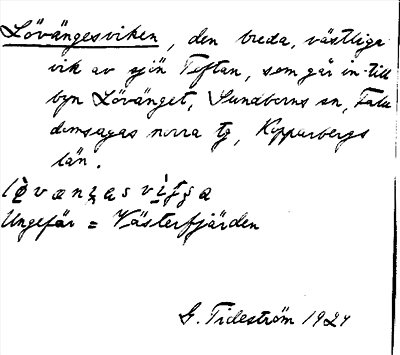 Lövängesviken, den breda, västliga
vik av sjön Toftan, som går in till
byn Lövänget, Sundborns sn, Falu
domsagas norra tg, Kopparbergs
län.
Ungefär = Västerfjärden
G. Tideström 1924